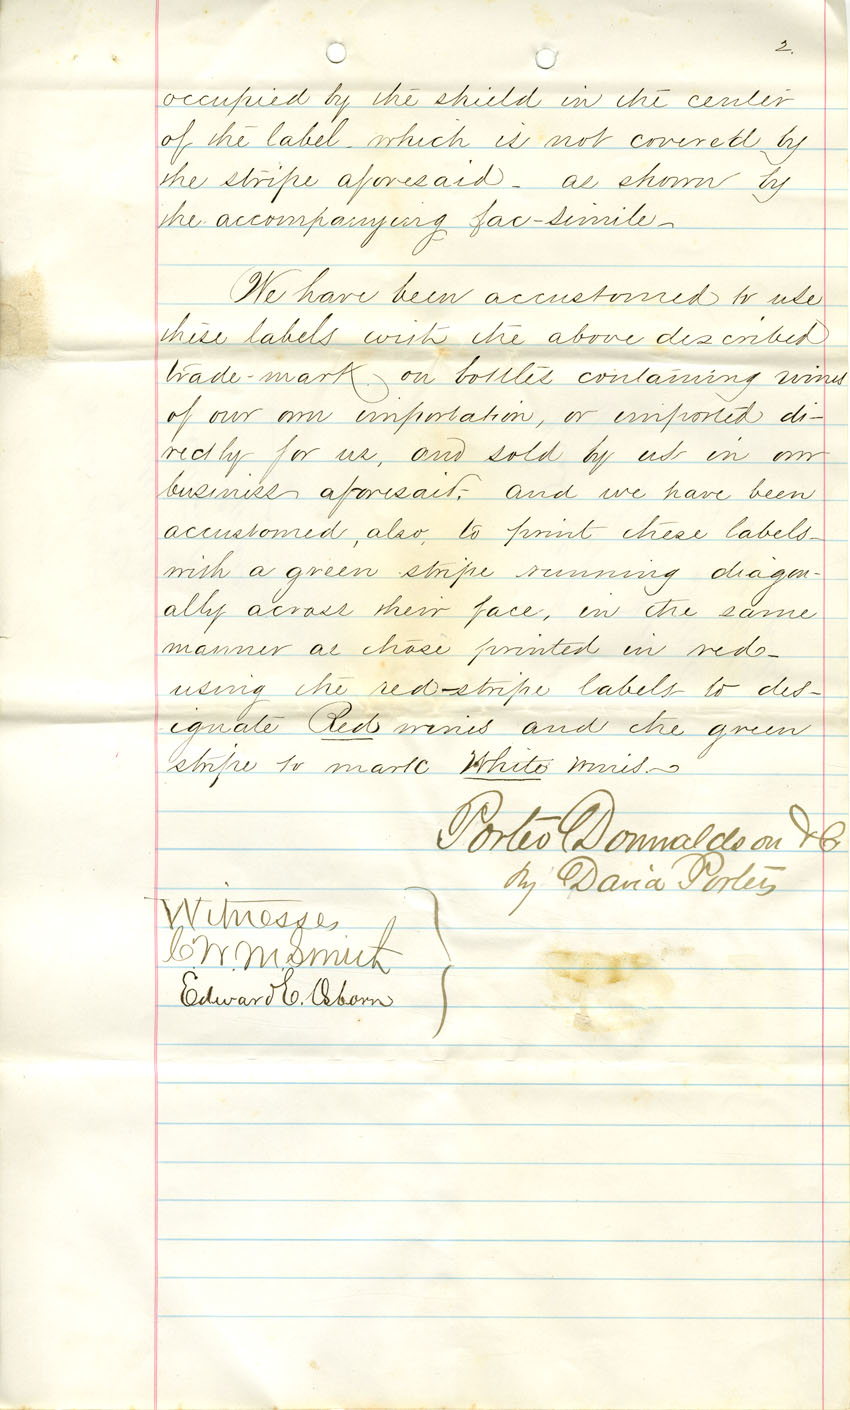 2.
occupied by the shield in the center
of the label which is not covered by
the stripe aforesaid - as shown by
the accompanying fac-simile -
We have been accustomed to use
these labels with the above described
trade-mark on bottles containing wines
of our own importation, or imported di-
rectly for us, and sold by us in our
business aforesaid; and we have been
accustomed, also, to print these labels
with a green stripe running diagon-
ally across their face, in the same
manner as those printed in red -
using the red-stripe labels to des-
ignate Red wines and the green
stripe to mark White wines. -
Porter Donnaldson & Co
By David Porter
Witnesses
C W. M. Smith
Edward E. Osborn